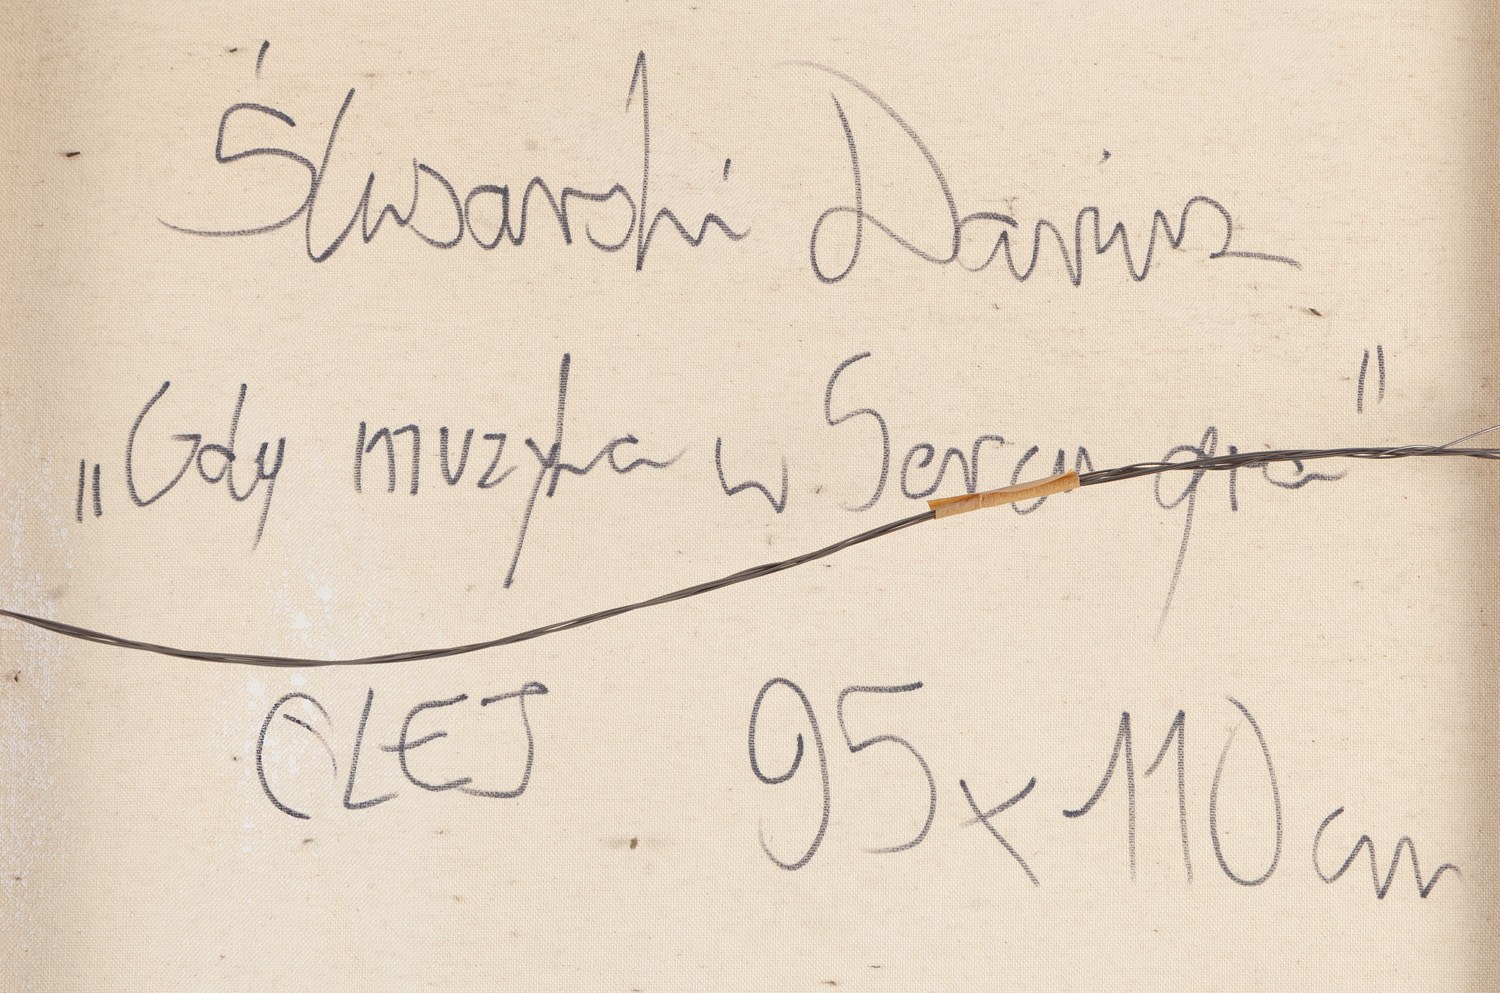 Ślusarski Dariusz
„Gdy muzyka w Sercu gra"
OLEJ 95x110cm